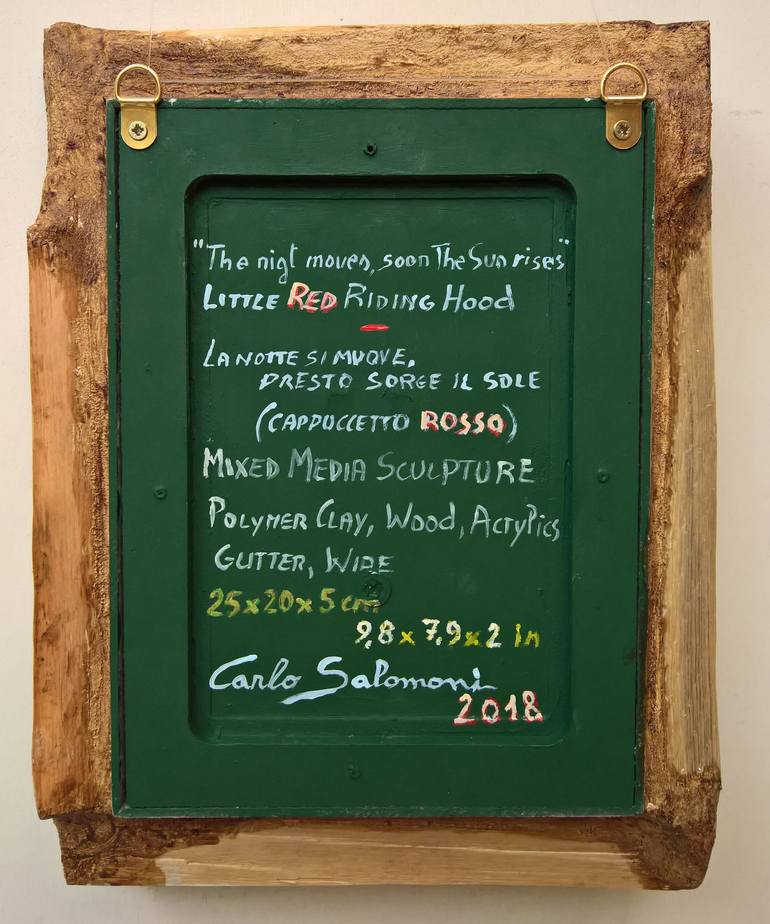 "The nigt moves, soon The Sun rises"
LITTLE RED RIDING HOOD
LA NOTTE SI MUOVE,
PRESTO SORGE IL SOLE
(CAPPUCCETTO ROSSO)
MIXED MEDIA SCULPTURE
POLYMER CLAY, WOOD, ACRYLICS
GLITTER, WIRE
25x20x5 cm
9,8 x 7,9 x 2 in
Carlo Salomoni
2018